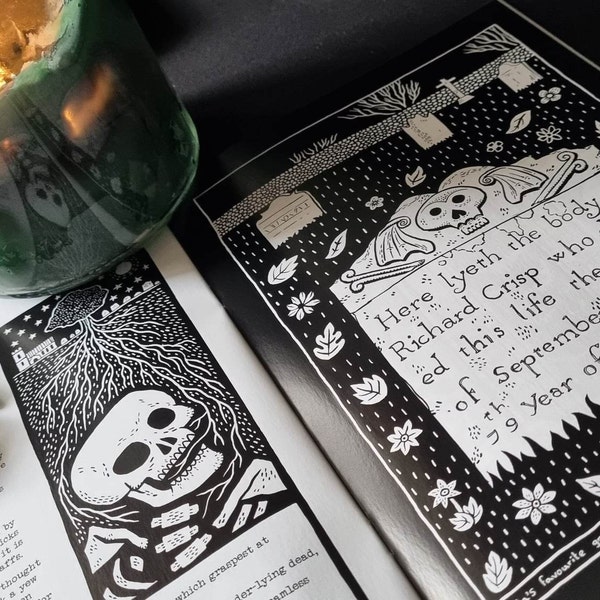 by
icks
it is
affs.
thought
a yew
which graspest at
der-lying dead,
eamless
Here lyeth the body
Richard Crisp who
ed this life the
of September
th
79 year of
's favourite